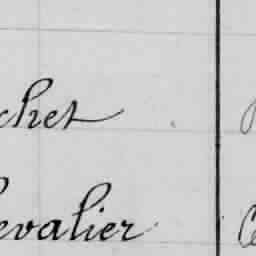 chet
hevalier